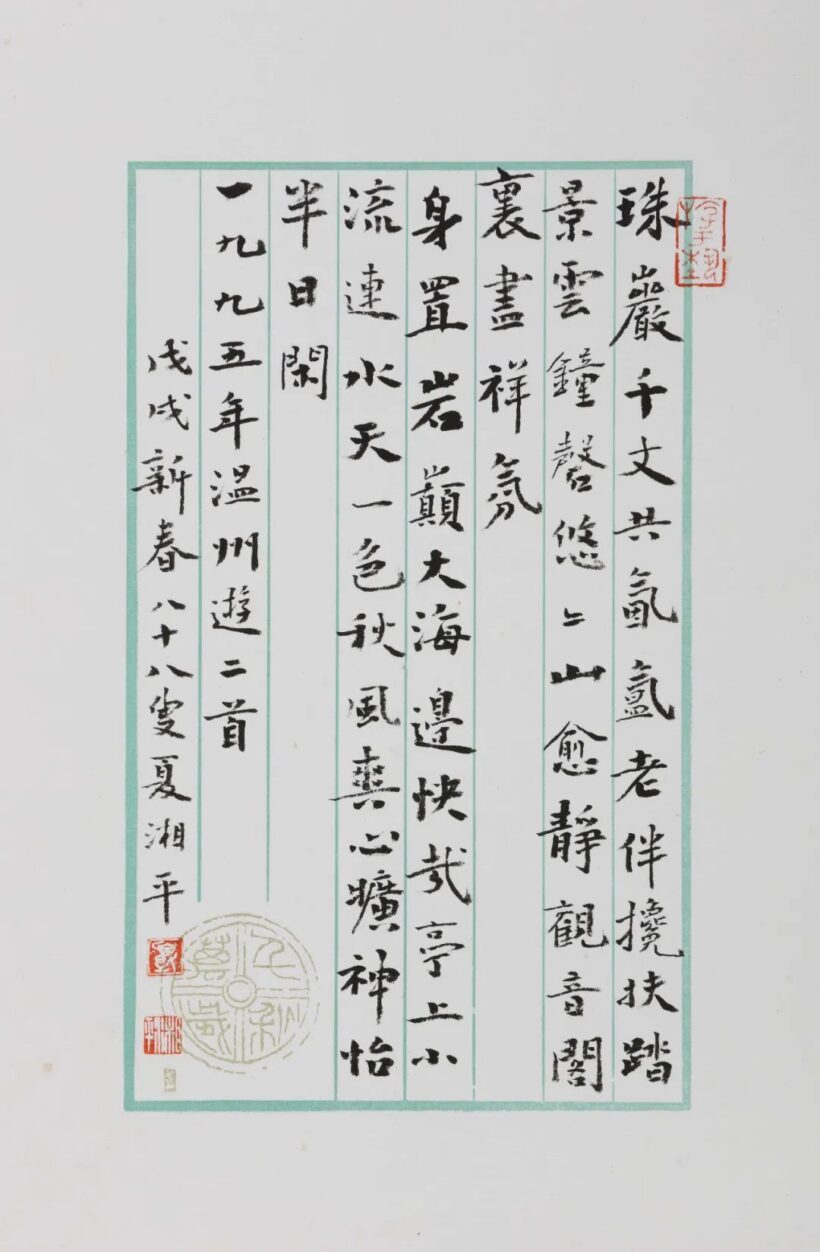 珠巖千丈共氤氳老伴攙扶踏
景雲鐘磬悠〻山愈靜觀音閣
裏盡祥氛
身置岩巔大海邊快哉亭上小
流連水天一色秋風爽心曠神怡
半日閑
一九九五年溫州遊二首
戊戌新春八十八叟夏湘平